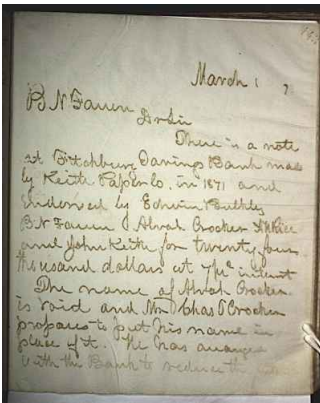 March 1 7
B N Farren
Dr Sir
There is a note
at Fitchburg Savings Bank made
by Keith Paper Co. in 1871 and
Endorsed by Edwin Bulkley
B N Farren Alvah Crocker
and John Keith for twenty four
thousand dollars at 7 pr ct interest
The name of Alvah Crocker
is void and Mr Chas T Crocker
proposes to put his name in
place of it. He has arranged
with the Bank to reduce the